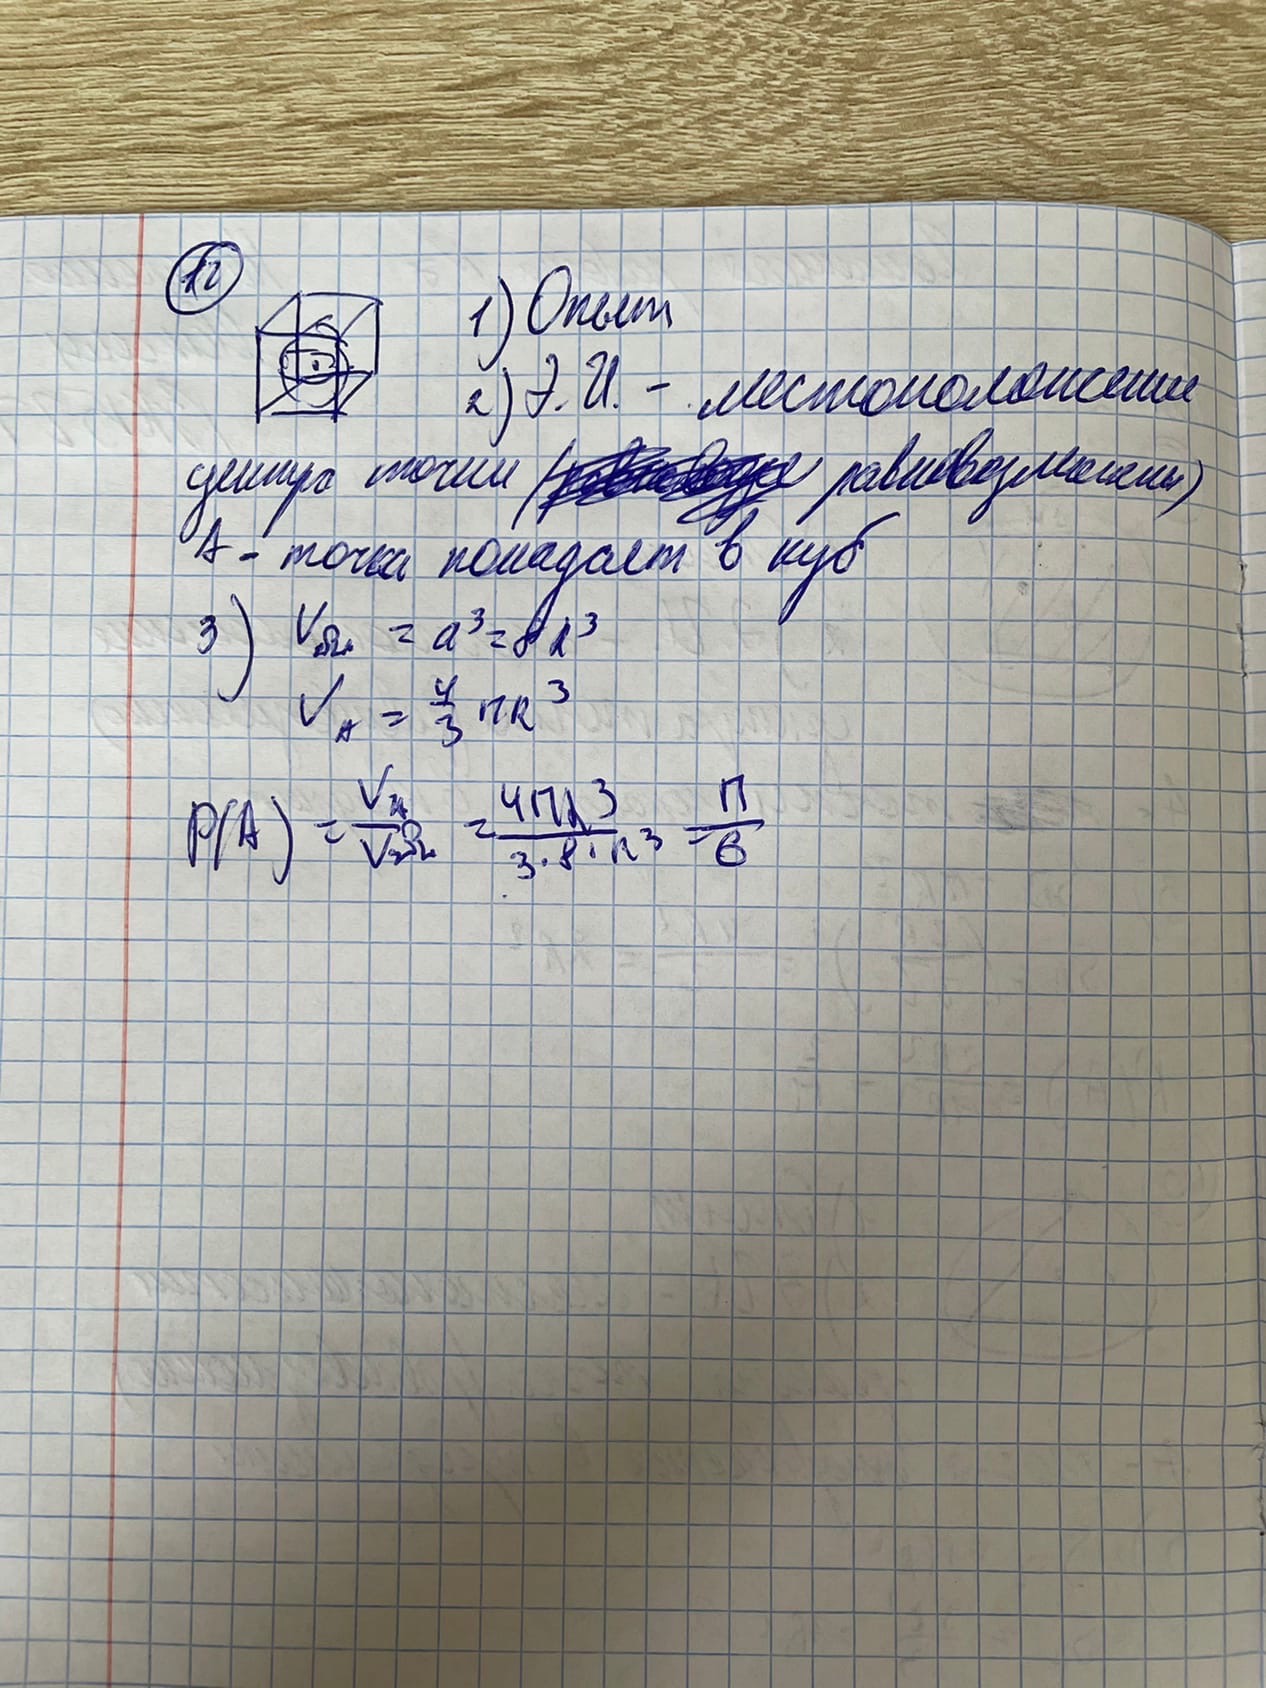 12
1) Опыт
2) Э.И. - местоположение
центра точки ( равновозможны)
A - точка попадает в куб
3) VΩ = a³ = 8R³
V_A = 4/3 πR³
P(A) = V_A/VΩ = 4πR³/3·8·R³ = π/6